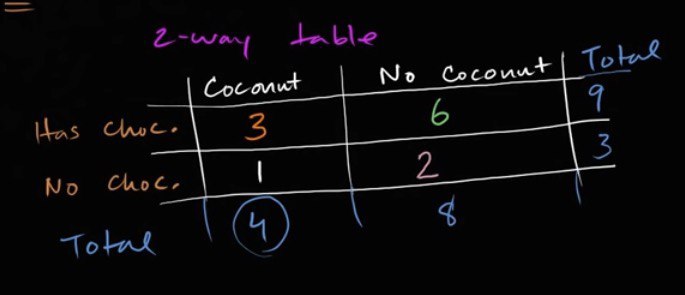 2-way table
Coconut No coconut Total
Has choc. 3 6 9
No choc. 1 2 3
Total 4 8